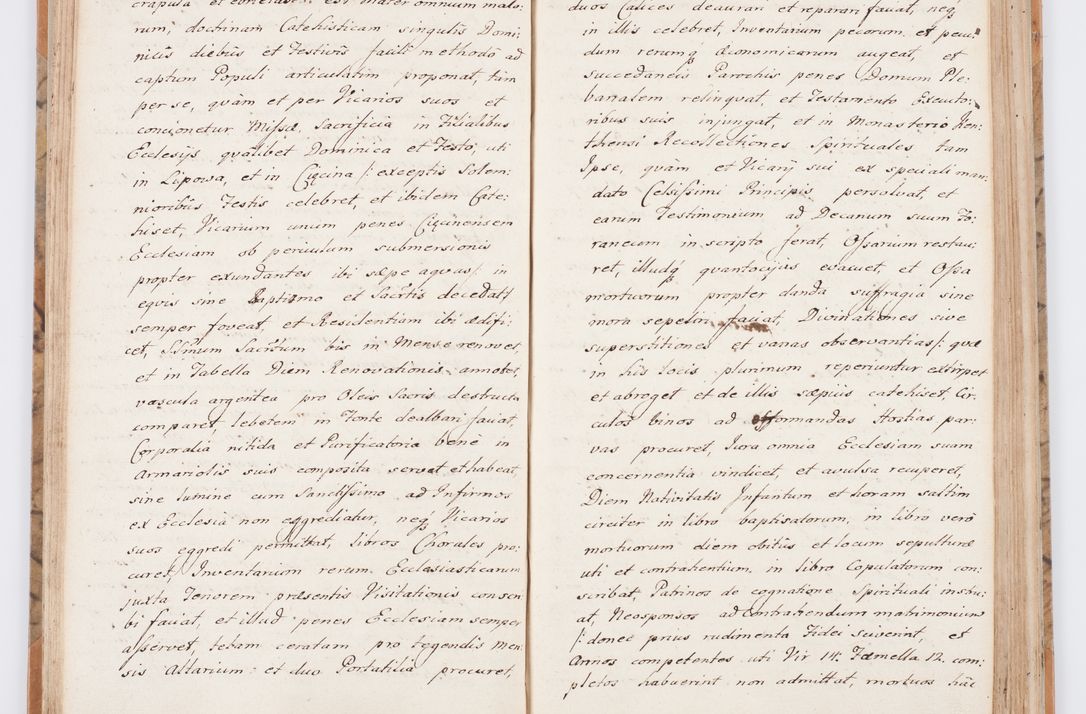 crapula et ebrietas: est mater omnium malo:
rum, doctrinam Catehisticam singulis Domi:
nicis diebus et Festivis facili methodo ad
captum Populi articulatim proponat, tam
per se, quàm et per Vicarios suos et
concionetur Missæ, Sacrificia in Filialibus
Ecclesijs qvâlibet Dominica et Festo, uti
in Lipowa, et in Cięcina /: exceptis Solem:
nioribus Festis celebret, et ibidem Cate:
hiset, Vicarium unum penes Cięcinensem
Ecclesiam ob periculum submersionis
propter exundantes ibi sæpe aqvas /: in
eqvis sine Baptismo et Sacrtis decedat /
semper foveat, et Residentiam ibi ædifi:
cet, SSmum Sacrtum bis in Mense renovet,
et in Tabella Diem Renovationis annotet,
vascula argentea pro Oleis Sacris destructa
comparet, lebetem in Fonte dealbari faciat,
Corporalia nitida et Purificatoria bene in
Armariolis suis composita servet et habeat,
sine lumine cum Sanctissimo ad Infirmos
ex Ecclesia non eggrediatur, neq Vicarios
suos eggredi permittat, libros Chorales pro:
curet, Inventarium rerum Ecclesiasticarum
juxta Tenorem præsentis Visitationis conscri
bi faciat, et illud penes Ecclesiam semper
asservet, telam ceratam pro tegendis men:
sis Altarium et duo Portatilia procuret,
duos Calices deaurari et reparari faciat, neq
in illis celebret, Inventarium pecorum et pecu
dum rerumq œconomicarum augeat, et
succedaneis Parochis penes Domum Ple:
banalem relinqvat, et Testamento Executo:
ribus suis injungat, et in Monasterio Ken:
thensi Recollectiones Spirituales tam
Ipse, quàm et Vicarij sui ex speciali man:
dato Celsissimi Principis persolvat, et
earum Testimonium ad Decanum suum Fo:
raneum in scripto ferat, Ossarium restau:
ret, illudq qvantocijus evacuet, et Ossa
mortuorum propter danda suffragia sine
mora sepeliri faciat, Divinationes sive
superstitiones et vanas observantias /: qvæ
in his locis plurimum reperiuntur extirpet
et abroget et de illis sæpius catehiset, Cir:
culos binos ad efformandas Hostias par:
vas procuret, Iura omnia Ecclesiam suam
concernentia vindicet, et avulsa recuperet,
Diem Nativitatis Infantum et horam saltim
circiter in libro baptisatorum, in libro verò
mortuorum diem obitûs et locum sepulturæ
uti et contrahentium in libro Copulatorum con:
scribat, Patrinos de cognatione Spirituali instru:
at, Neosponsos ad contrahendum matrimonium
/: donec prius rudimenta Fidei sciverint, et
Annos competentes uti Vir 14. Fæmella 12. com:
pletos habuerint non admittat, mortuos hâc